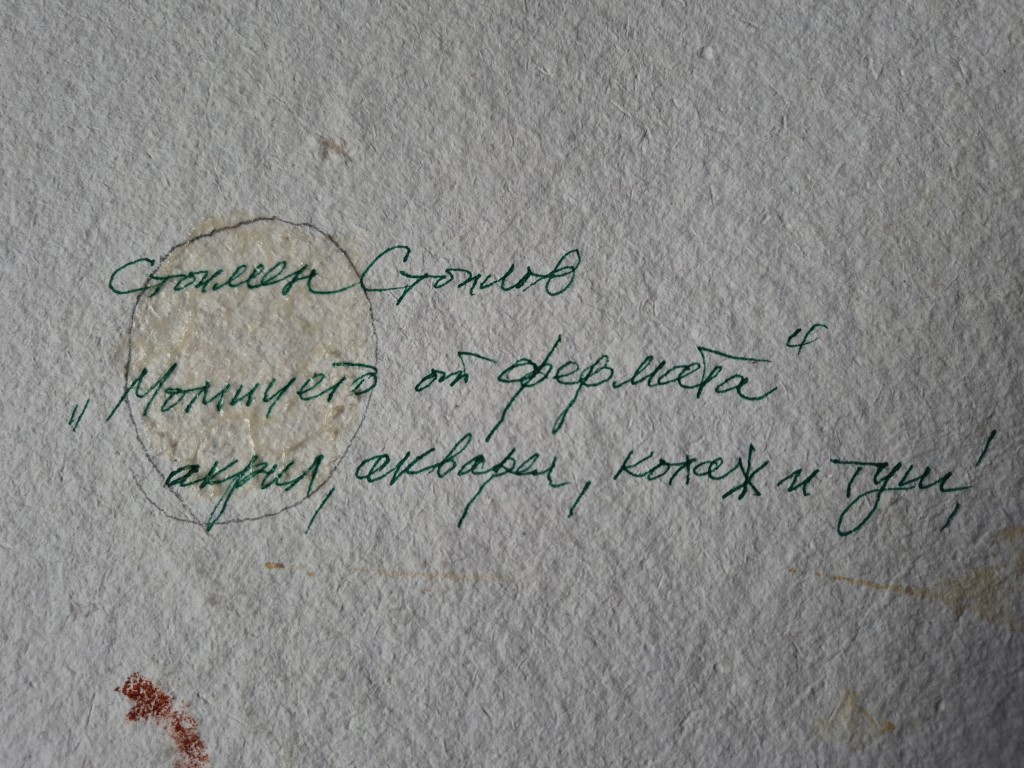 Стоимен Стоилов
„Момичето от фермата“
акрил, акварел, колаж и туш,